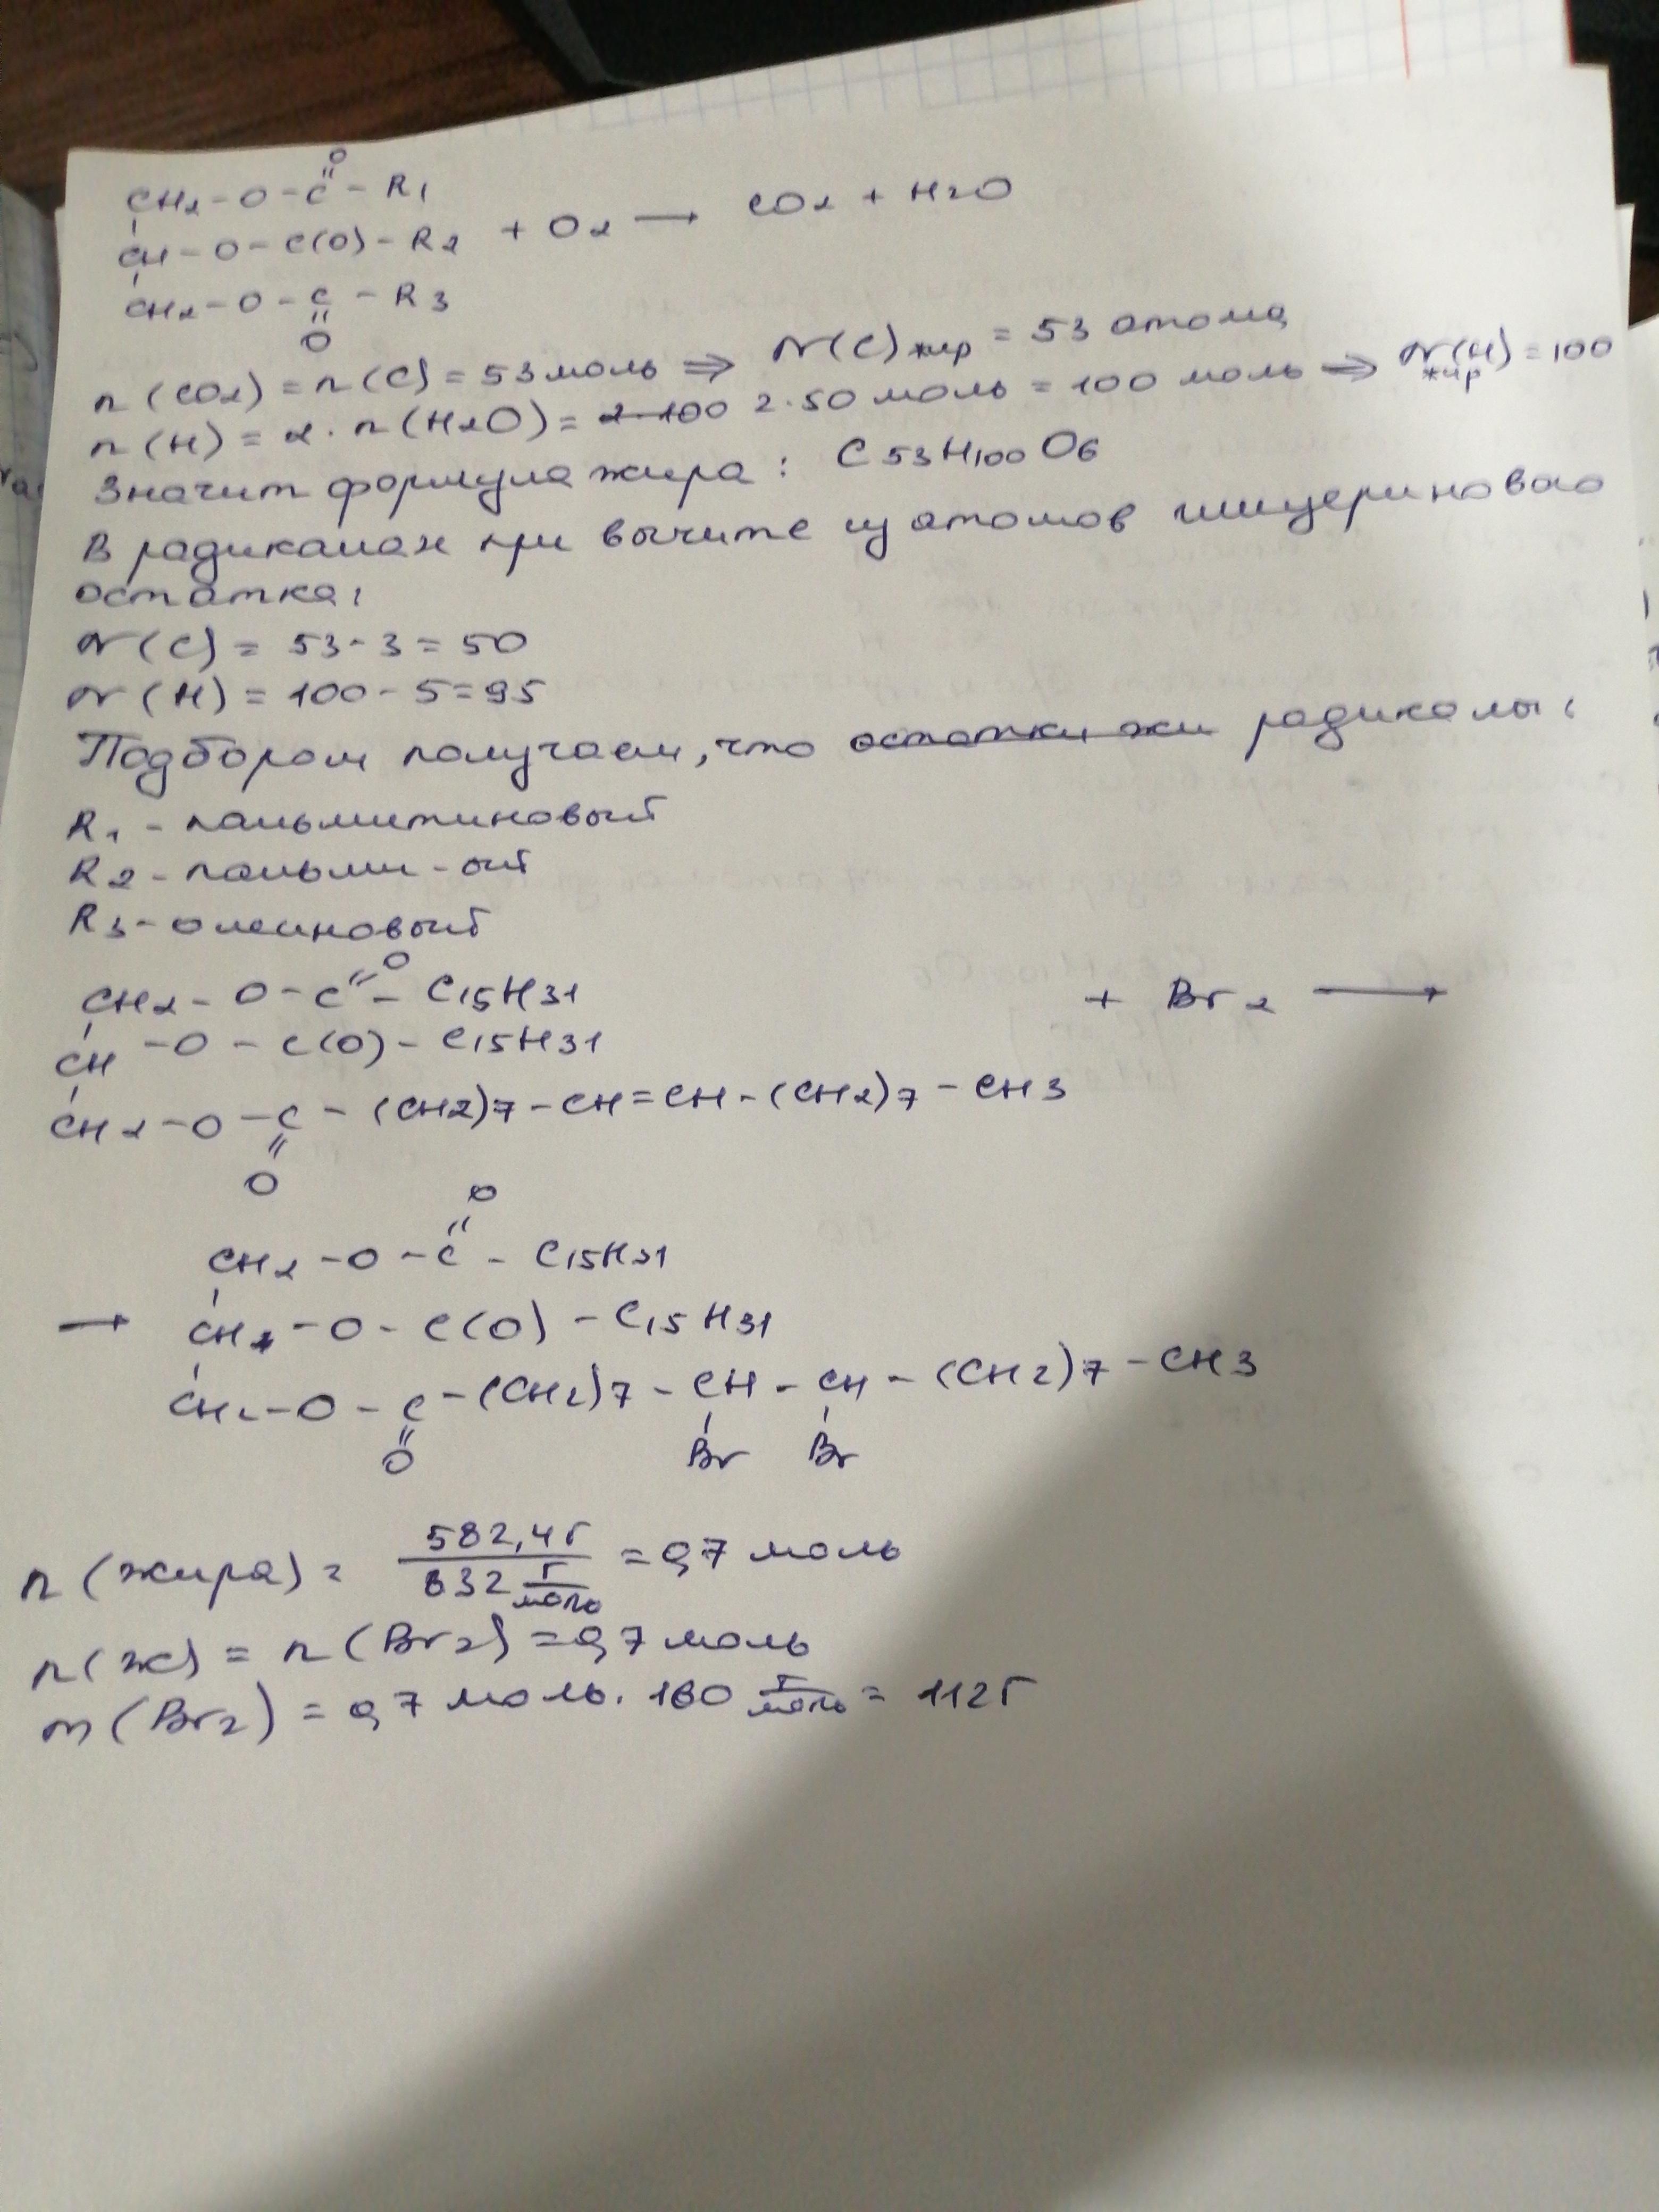 O
||
CH2 - O - C - R1
CH - O - C(O) - R2 + O2 → CO2 + H2O
CH2 - O - C - R3
||
O
n(CO2) = n(C) = 53 моль ⇒ N(C)жир = 53 атома
n(H) = 2 · n(H2O) = 2·100 2·50 моль = 100 моль ⇒ N(H)жир = 100
Значит формула жира: C53H100O6
В радикалах при вычите из атомов глицеринового
остатка:
N(C) = 53 - 3 = 50
N(H) = 100 - 5 = 95
Подбором получаем, что остатки жи радикалы:
R1 - пальмитиновый
R2 - пальми-ый
R3 - олеиновый
O
||
CH2 - O - C - C15H31 + Br2 →
CH - O - C(O) - C15H31
CH2 - O - C - (CH2)7 - CH = CH - (CH2)7 - CH3
||
O
O
||
CH2 - O - C - C15H31
→ CH2 - O - C(O) - C15H31
CH2 - O - C - (CH2)7 - CH - CH - (CH2)7 - CH3
|| Br Br
O
n(жира) = 582,4 г / 832 г/моль = 0,7 моль
n(ж) = n(Br2) = 0,7 моль
m(Br2) = 0,7 моль · 160 г/моль = 112 г